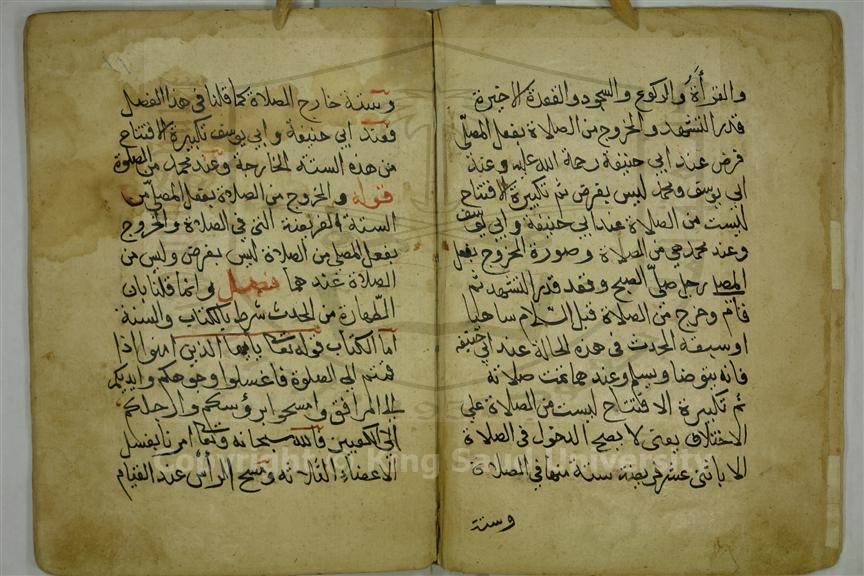 والقرأة والركوع والسجود والقعدة الاخيرة
قدر التشهد والخروج من الصلاة بفعل المصلّي
فرض عند ابي حنيفة رحمة الله عليه وعند
ابي يوسف ومحمد ليس بفرض ثم تكبيرة الافتتاح
ليست من الصلاة عند ابي حنيفة وابي يوسف
وعند محمد هي من الصلاة وصورة الخروج بفعل
المصلي رجل صلّى الصبح وقعد قدر التشهد ثم
قام وخرج من الصلاة قبل السلام ساهيا
او سبقه الحدث في هذه الحالة عند ابي حنيفه
فانه يتوضا ويسلم وعندهما تمت صلاته
ثم تكبيرة الافتتاح ليست من الصلاة علي
الاختلاف يعني لا يصح الدخول في الصلاة
الا باثني عشر فريضة ستة منها في الصلاة
وستة
وستة خارج الصلاة كما قلنا في هذا الفصل
فعند ابي حنيفة وابي يوسف تكبيرة الافتتاح
من هذه الستة الخارجة وعند محمد من الصلوة
قوله والخروج من الصلاة بفعل المصلي من
الستة الفريضة التي في الصلاة والخروج
بفعل المصلي من الصلاة ليس بفرض وليس من
الصلاة عندهما فصل وانما قلنا بان
الطهارة من الحدث شرط بالكتاب والسنة
اما الكتاب قوله تعالى يا ايها الذين امنوا اذا
قمتم الي الصلوة فاغسلوا وجوهكم وايديكم
الي المرافق وامسحوا برؤسكم وارجلكم
الى الكعبين فالله سبحانه وتعالى امرنا بغسل
الاعضاء الثلاثة ومسح الرأس عند القيام
Copyright © King Saud University